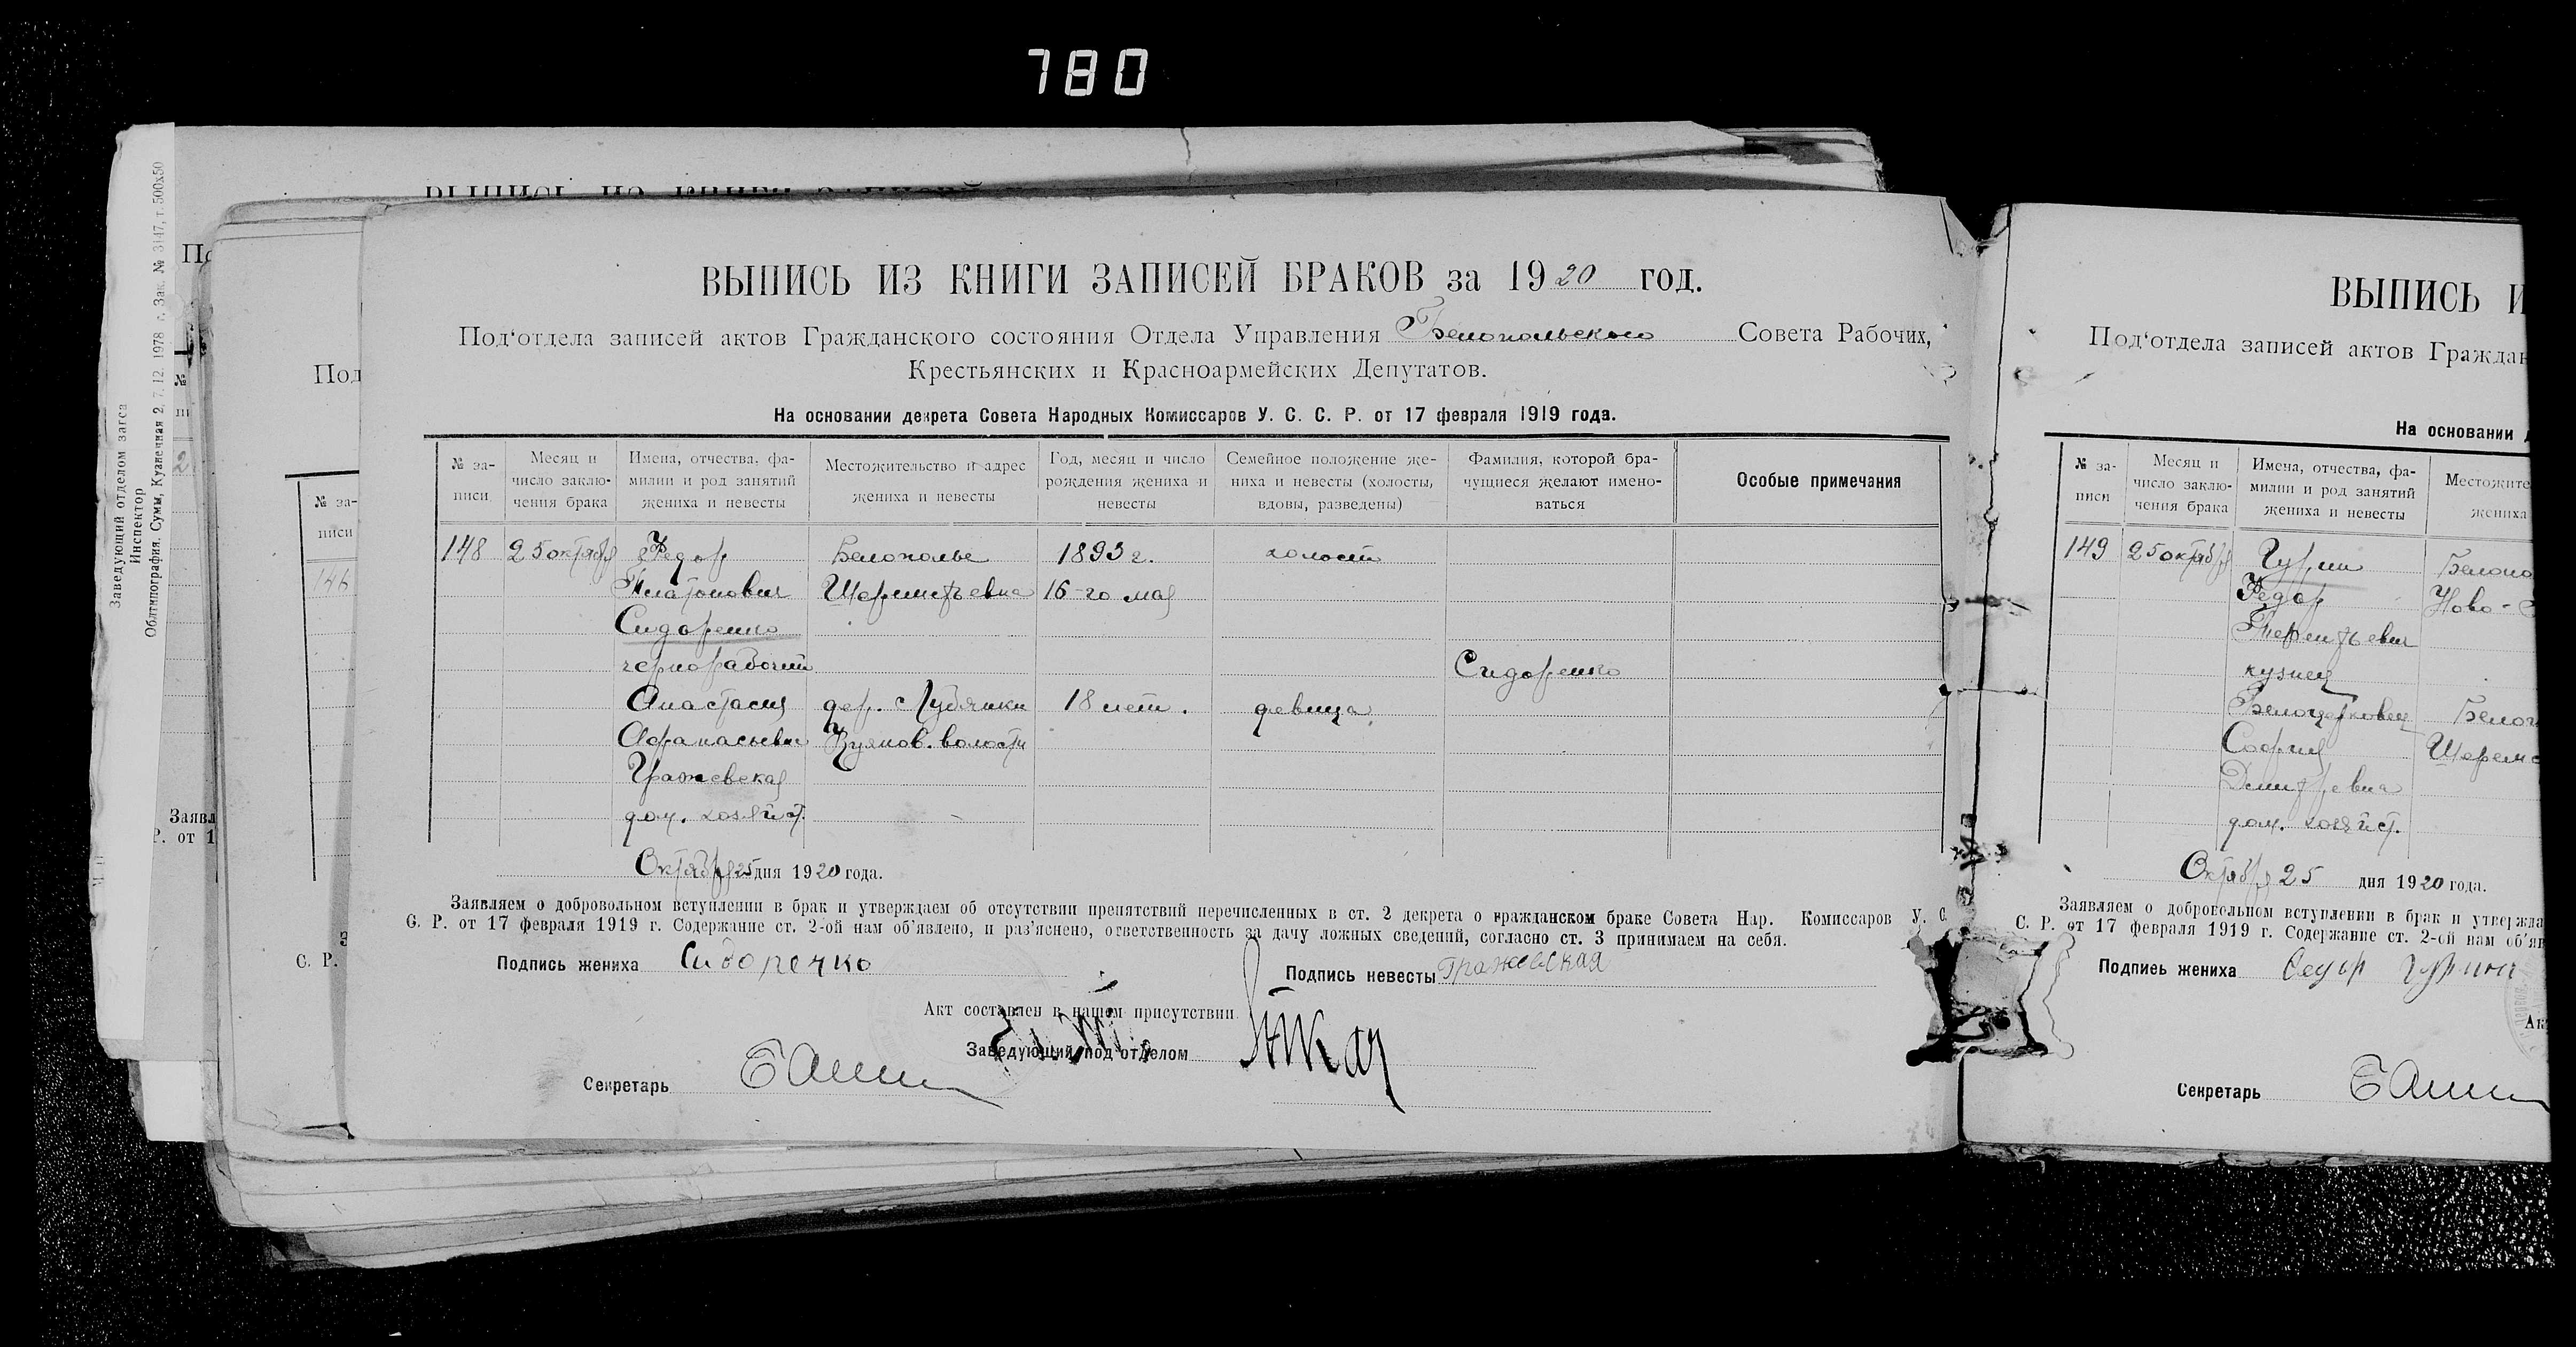 780
ВЫПИСЬ ИЗ КНИГИ ЗАПИСЕЙ БРАКОВ за 1920 год.
Под‘отдела записей актов Гражданского состояния Отдела Управления Белопольского Совета Рабочих,
Крестьянских и Красноармейских Депутатов.
На основании декрета Совета Народных Комиссаров У. С. С. Р. от 17 февраля 1919 года.
№ за-писи
Месяц и число заклю-чения брака
Имена, отчества, фа-милии и род занятий жениха и невесты
Местожительство и адрес жениха и невесты
Год, месяц и число рождения жениха и невесты
Семейное положение же-ниха и невесты (холосты, вдовы, разведены)
Фамилия, которой бра-чущиеся желают имено-ваться
Особые примечания
148 25 октября Федор Белополье 1893 г. холост
Платонович Шереметьевка 16-го мая
Сидоренко
чернорабочий Сидоренко
Анастасия дер. Лубянки 18 лет. девица
Афанасьевна Куянов. волости
Гражевская
дом. хозяйст.
Октября 25 дня 1920 года.
Заявляем о добровольном вступлении в брак и утверждаем об отсутствии препятствий перечисленных в ст. 2 декрета о гражданском браке Совета Нар. Комиссаров У. С.
С. Р. от 17 февраля 1919 г. Содержание ст. 2-ой нам об‘явлено, и раз‘яснено, ответственность за дачу ложных сведений, согласно ст. 3 принимаем на себя.
Подпись жениха Сидоренко
Подпись невесты Гражевская
Акт составлен в нашем присутствии
Заведующий под‘отделом
Секретарь
ВЫПИСЬ И
Под‘отдела записей актов Граждан
На основании д
№ за-писи
Месяц и число заклю-чения брака
Имена, отчества, фа-милии и род занятий жениха и невесты
Местожите
жениха
149 25 октября Гурин Белопо
Федор Ново-
Терентьевич
кузнец
Белоцерковец Белоп
София Шереме
Дмитревна
дом. хозяйст.
Октября 25 дня 1920 года.
Заявляем о добровольном вступлении в брак и утвержда
С. Р. от 17 февраля 1919 г. Содержание ст. 2-ой нам об‘яв
Подпись жениха Федор Гурин
Ак
Секретарь
Заведующий отделом загса
Инспектор
Облтипография. Сумы, Кузнечная 2, 7. 12. 1978 г. Зак. № 3147, т. 500х50
По
Под
№ за-писи
146
Заявл
Р. от 1
С. Р.